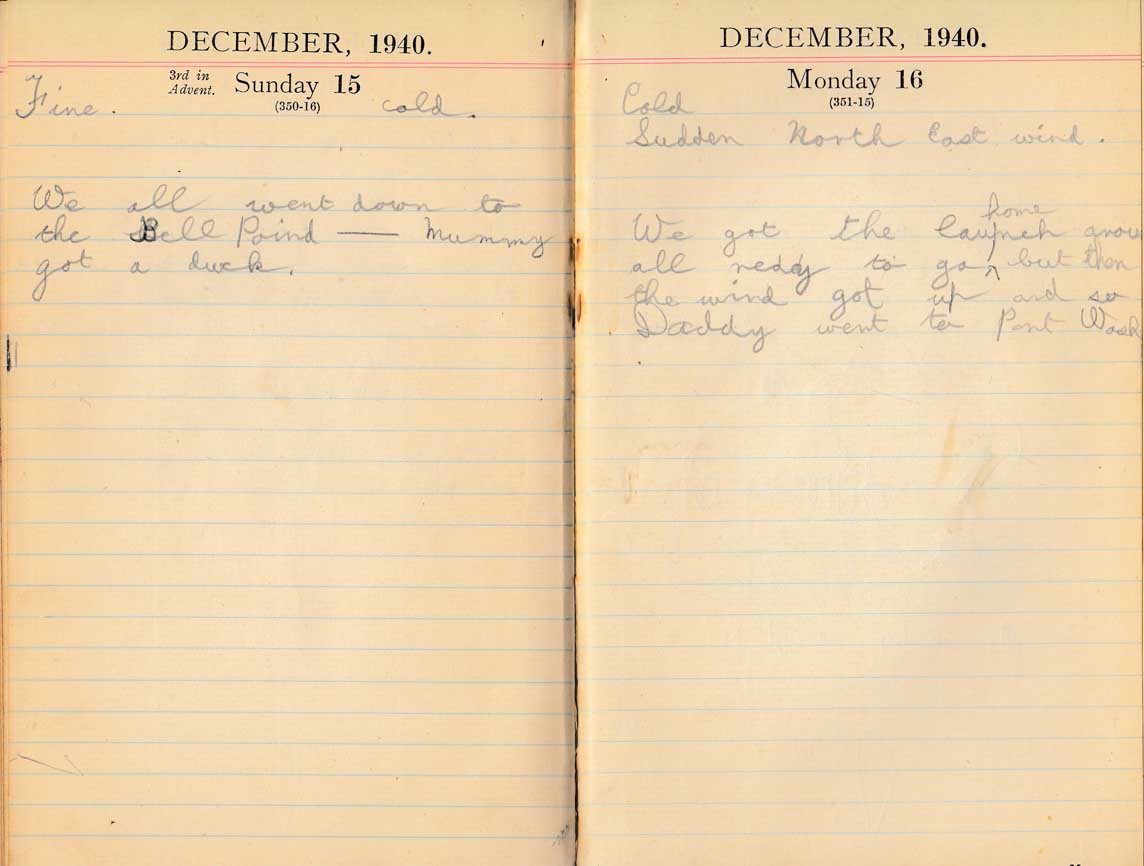 DECEMBER, 1940.
3rd in Advent. Sunday 15
(350-16)
Fine. cold.
We all went down to
the Bell Poind — Mummy
got a duck.
DECEMBER, 1940.
Monday 16
(351-15)
Cold
Sudden North East wind.
home
We got the launch
all reddy to go ^ but then
the wind got up and so
Daddy went to Port Wash